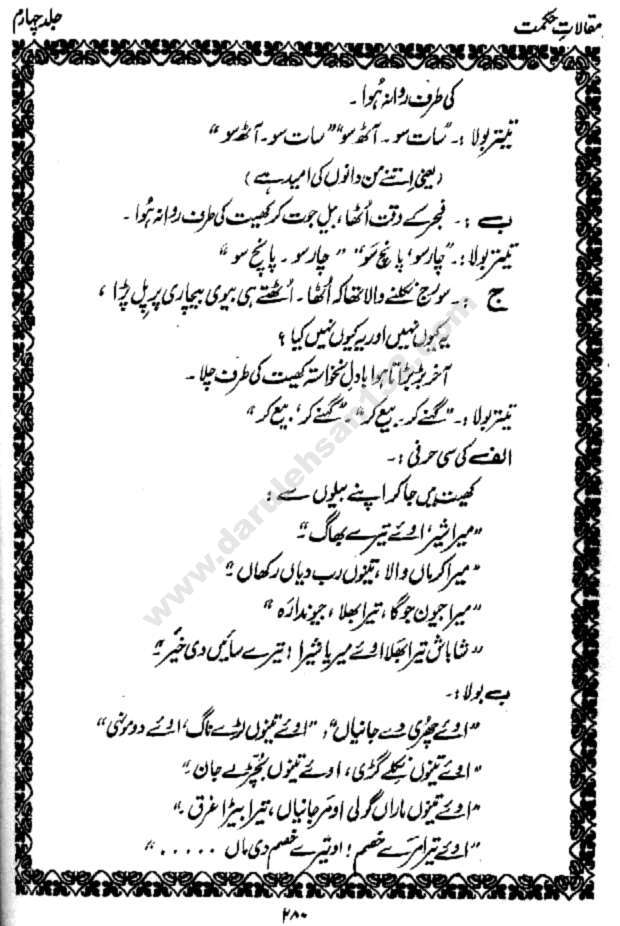 مقالاتِ حکمت
جلد چہارم
کی طرف روانہ ہُوا ۔
تیتر بولا :۔ "سات سو ۔ آٹھ سو" "سات سو ۔ آٹھ سو"
(یعنی اتنے من دانوں کی امید ہے)
بے :۔ فجر کے وقت اُٹھا ، ہل جوت کر کھیت کی طرف روانہ ہُوا ۔
تیتر بولا :۔ "چار سو ، پانچ سَو" " چار سو ۔ پانچ سو "
ج :۔ سورج نکلنے والا تھا کہ اُٹھا ۔ اُٹھتے ہی بیوی بیچاری پر پل پڑا ،
یہ کیوں نہیں اور یہ کیوں نہیں کیا ؟
آخر بڑبڑاتا ہوا بادلِ نخواستہ کھیت کی طرف چلا ۔
تیتر بولا :۔ "گہنے کر ۔ بیع کر" ۔ "گہنے کر ، بیع کر"
الف کی سی حرفی :۔
کھیت میں جا کر اپنے بیلوں سے :
"میرا شیر ، اوئے تیرے بھاگ"
"میرا کرماں والا ، تینوں رب دیاں رکھاں"
"میرا جیون جوگا ، تیرا بھلا ، جیوندا رَہ"
"شاباش تیرا بھلا اوئے میریا شیرا ! تیرے سائیں دی خیر"
بے بولا :۔
"اوئے چھُری دے جانیاں" ، "اوئے تینوں لڑے ناگ ، اوئے دومونہی"
"اوئے تینوں نکلے گڑی ، اوئے تینوں بُچڑ لے جان"
"اوئے تینوں ماراں گولی او مَر جانیاں ، تیرا بیڑا غرق"
"اوئے تیرا مَرے خصم ! او تیرے خصم دی ماں . . . . . "
۲۸۰
www.darulehsan123.com